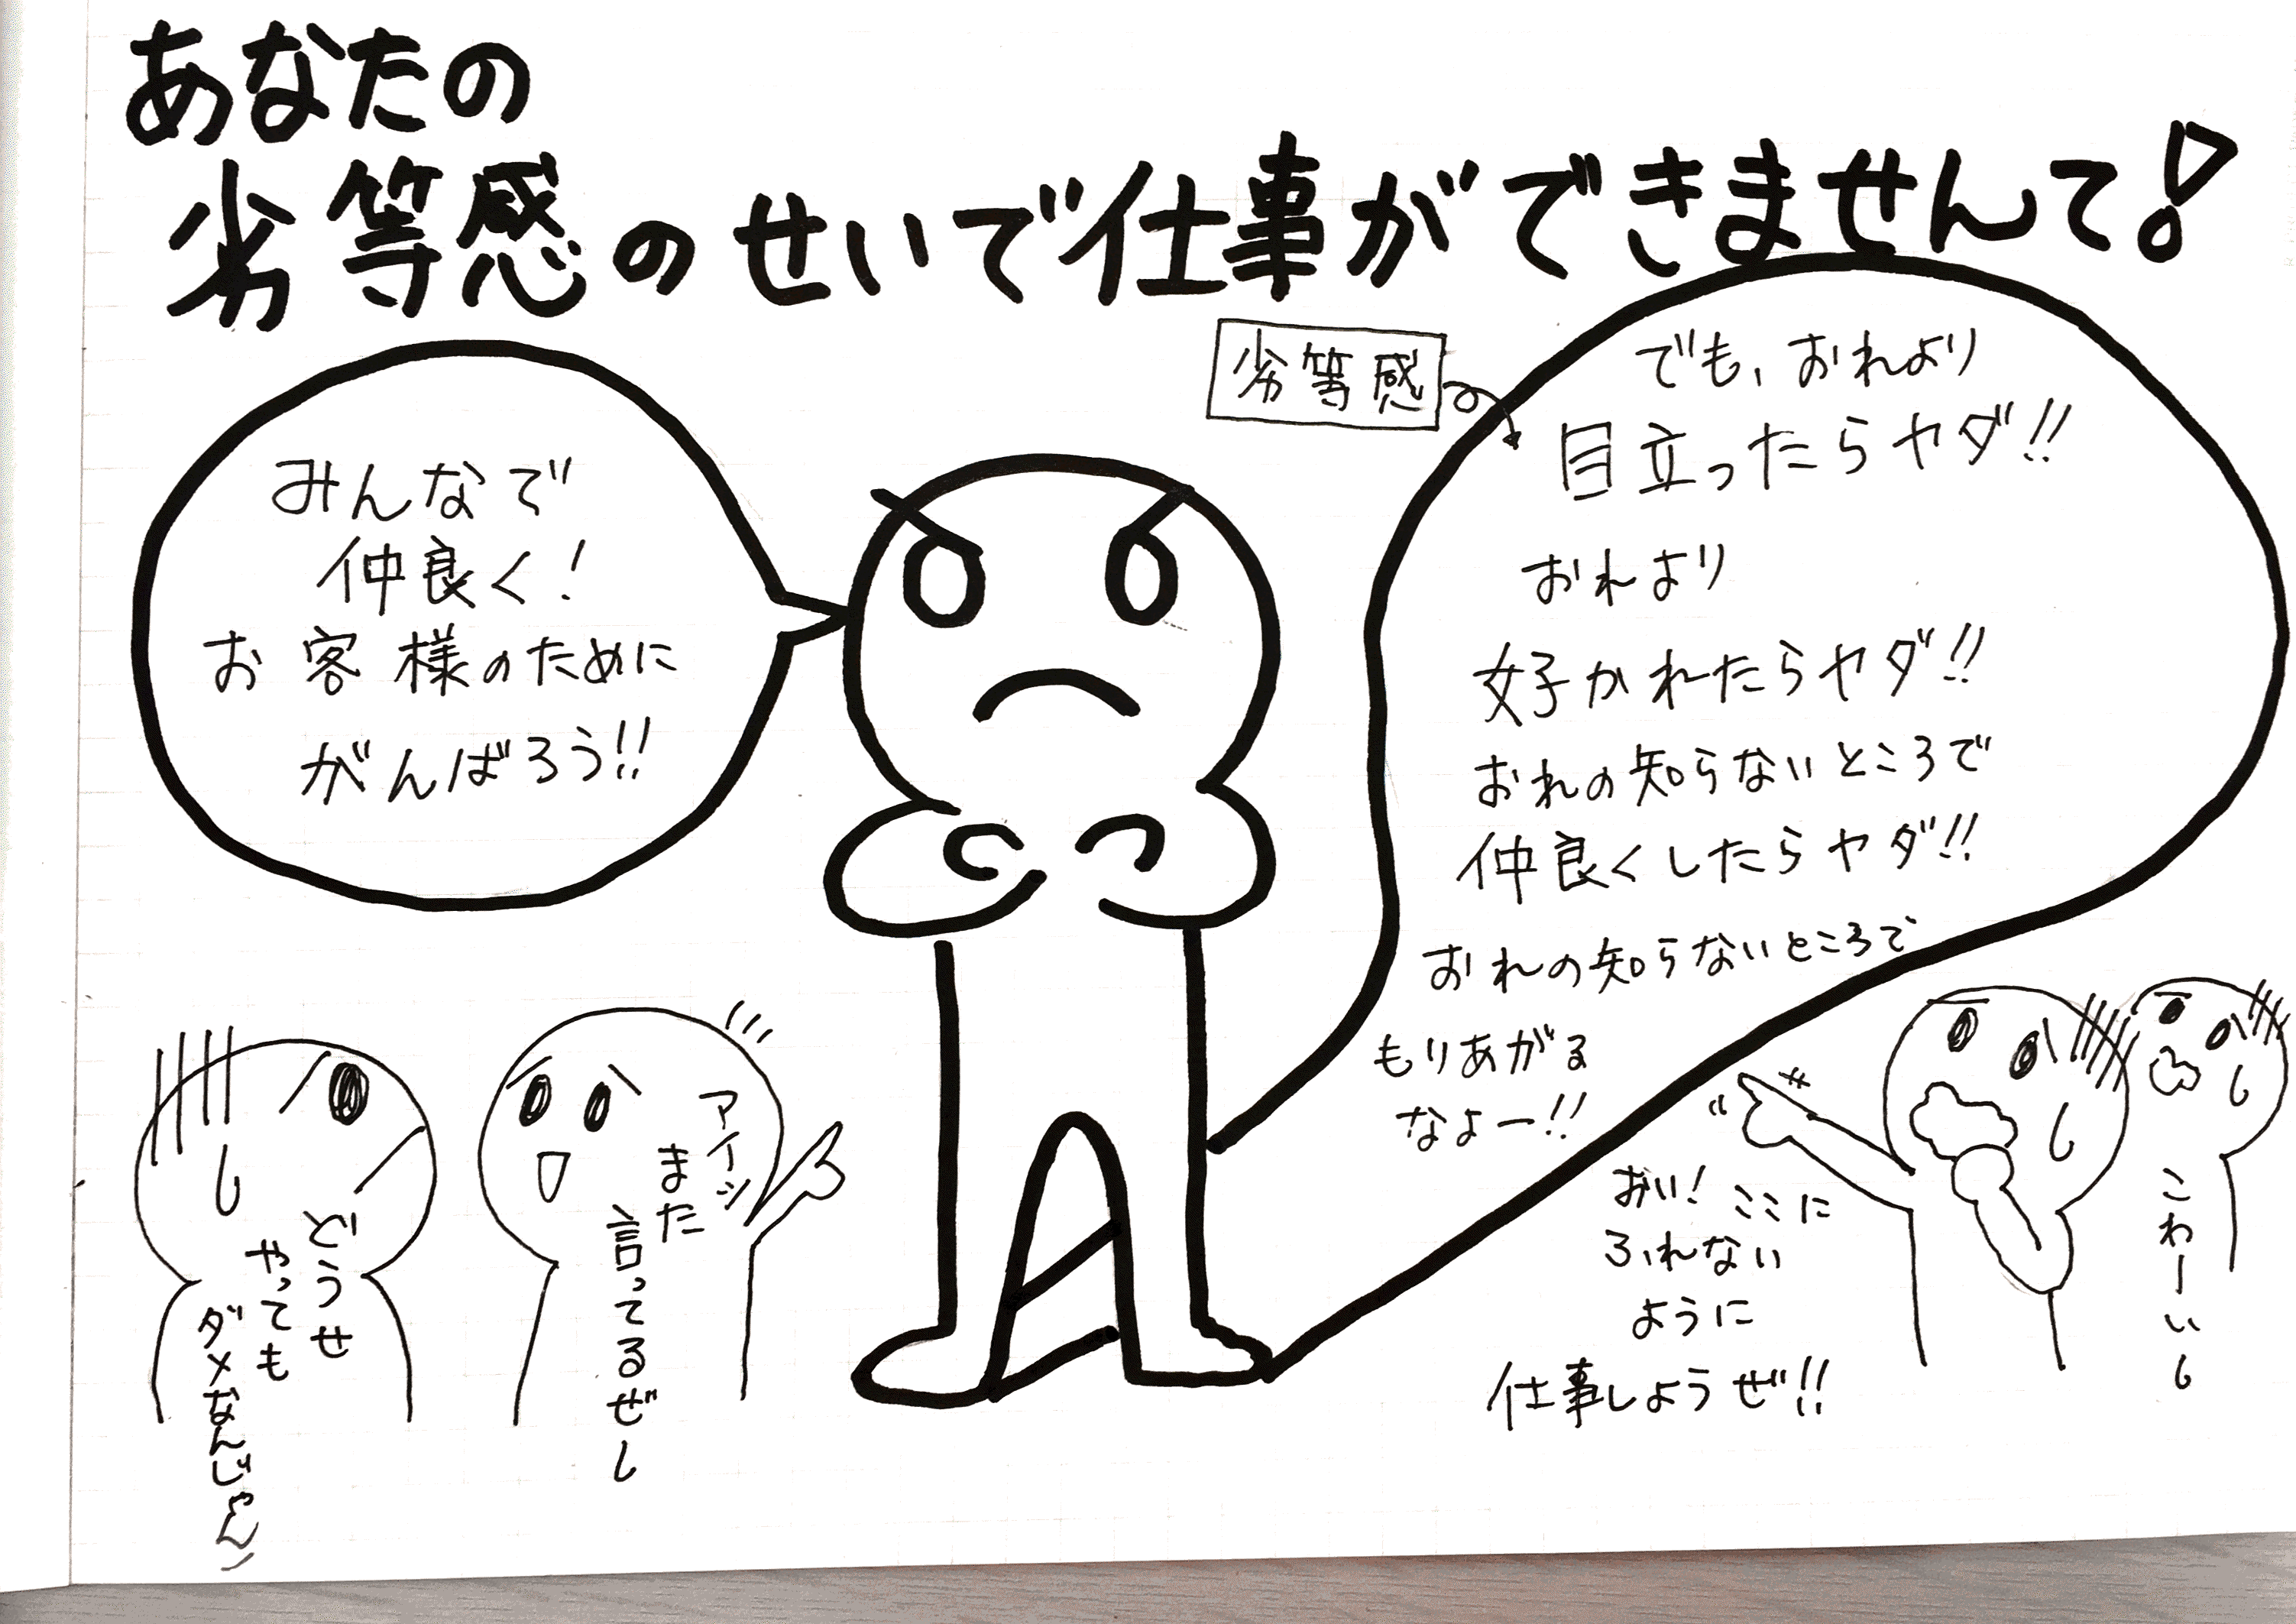 あなたの
劣等感のせいで仕事ができませんて!
みんなで
仲良く!
お客様のために
がんばろう!!
劣等感
でも、おれより
目立ったらヤダ!!
おれより
好かれたらヤダ!!
おれの知らないところで
仲良くしたらヤダ!!
おれの知らないところで
もりあがる
なよー!!
どうせ
やっても
ダメなんじゃん
アイツ
また
言ってるぜし
おい!ここに
ふれない
ように
仕事しようぜ!!
こわーいし